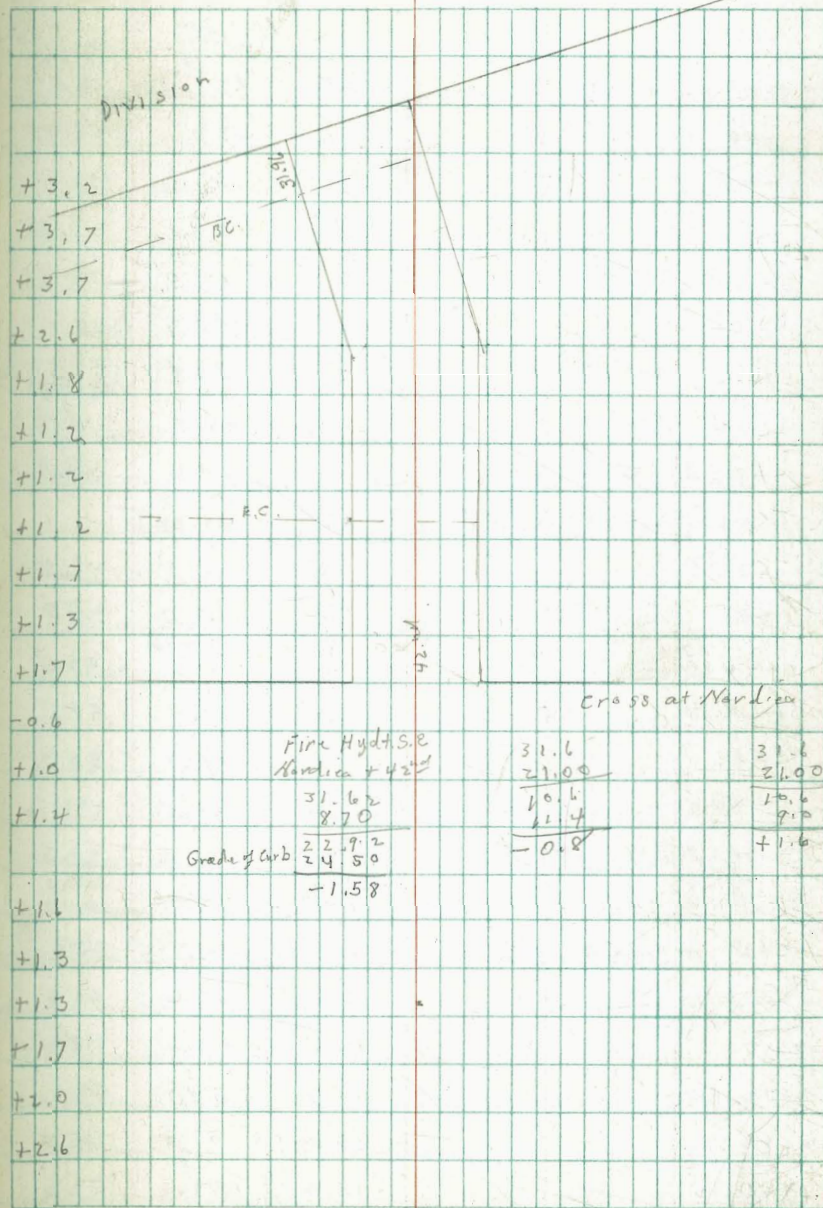 Division
31.96
B.C.
E.C.
42nd
+3.2
+3.7
+3.7
+2.6
+1.8
+1.2
+1.2
+1.2
+1.7
+1.3
+1.7
-0.6
+1.0
+1.4
+1.6
+1.3
+1.3
+1.7
+2.0
+2.6
Cross at Nordica
Fire Hydt. S.E
Nordica + 42nd
31.62
8.70
22.92
Grade of Curb 24.50
-1.58
31.6
21.00
10.6
11.4
-0.8
31.6
21.00
10.6
9.0
+1.6